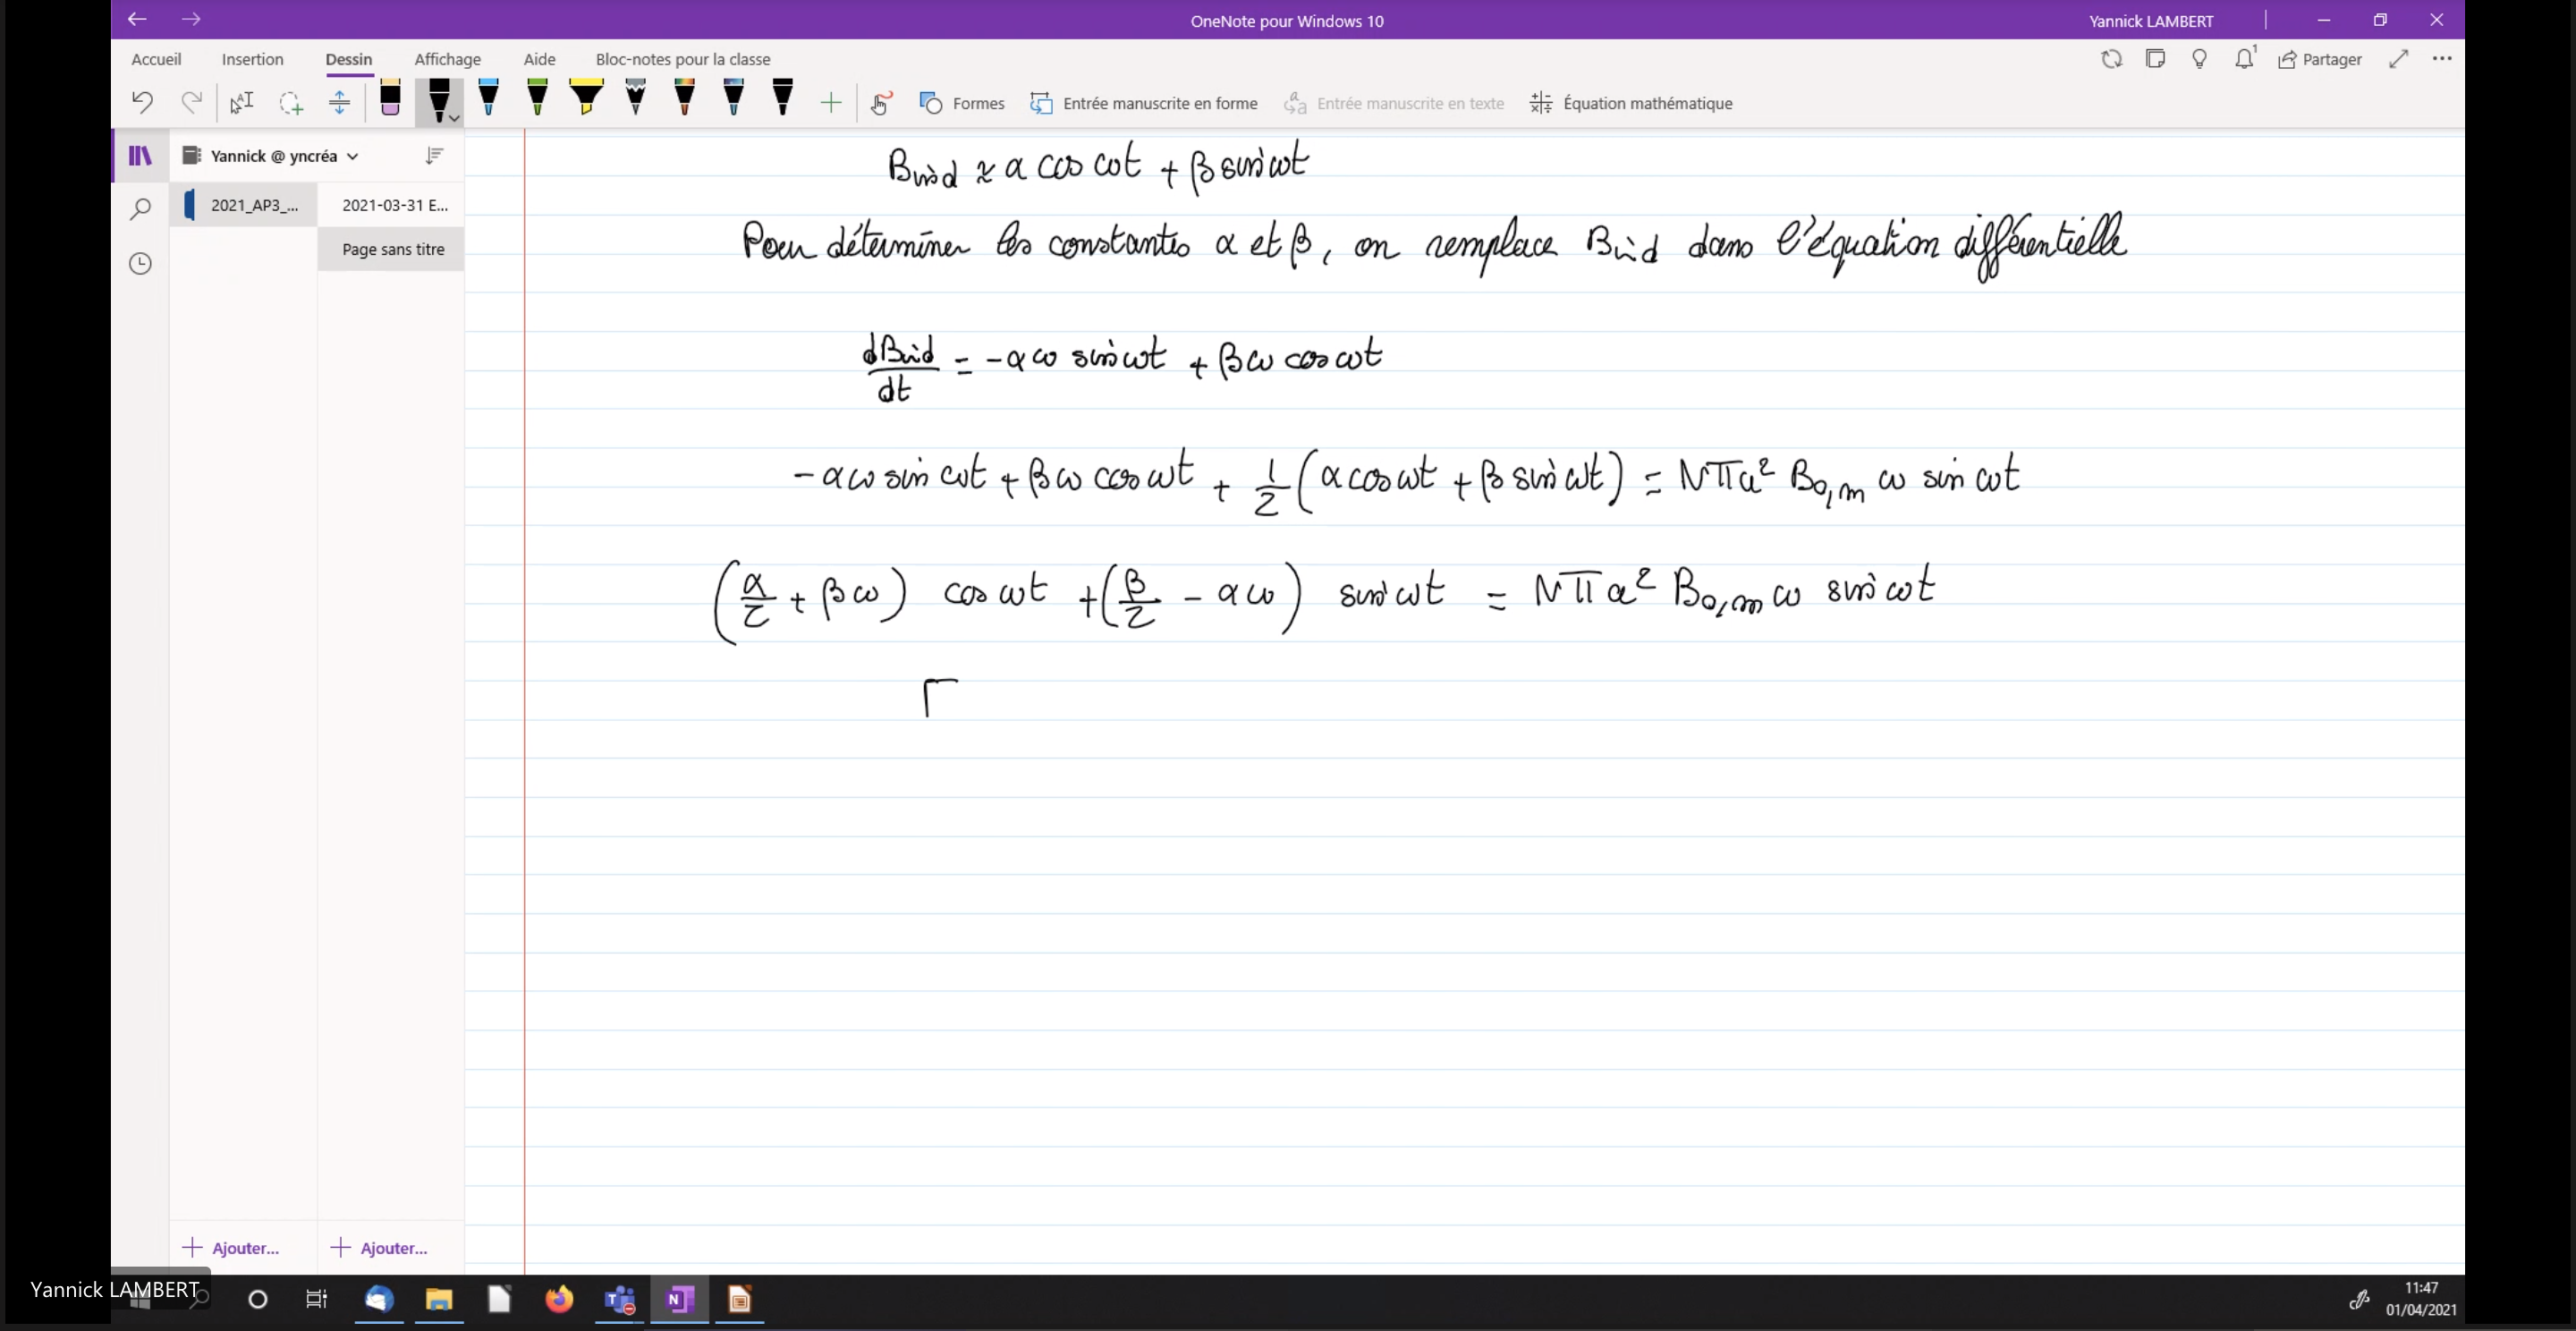 OneNote pour Windows 10
Yannick LAMBERT
Accueil Insertion Dessin Affichage Aide Bloc-notes pour la classe
1
Partager
Formes Entrée manuscrite en forme Entrée manuscrite en texte Équation mathématique
Yannick @ yncréa
2021_AP3_... 2021-03-31 E...
Page sans titre
Bind ≈ α cos ωt + β sin ωt
Pour déterminer les constantes α et β, on remplace Bind dans l'équation différentielle
dBind/dt = -αω sin ωt + βω cos ωt
-αω sin ωt + βω cos ωt + 1/τ (α cos ωt + β sin ωt) = Nπa² B0,m ω sin ωt
(α/τ + βω) cos ωt + (β/τ - αω) sin ωt = Nπa² B0,m ω sin ωt
Ajouter... Ajouter...
Yannick LAMBERT
11:47
01/04/2021